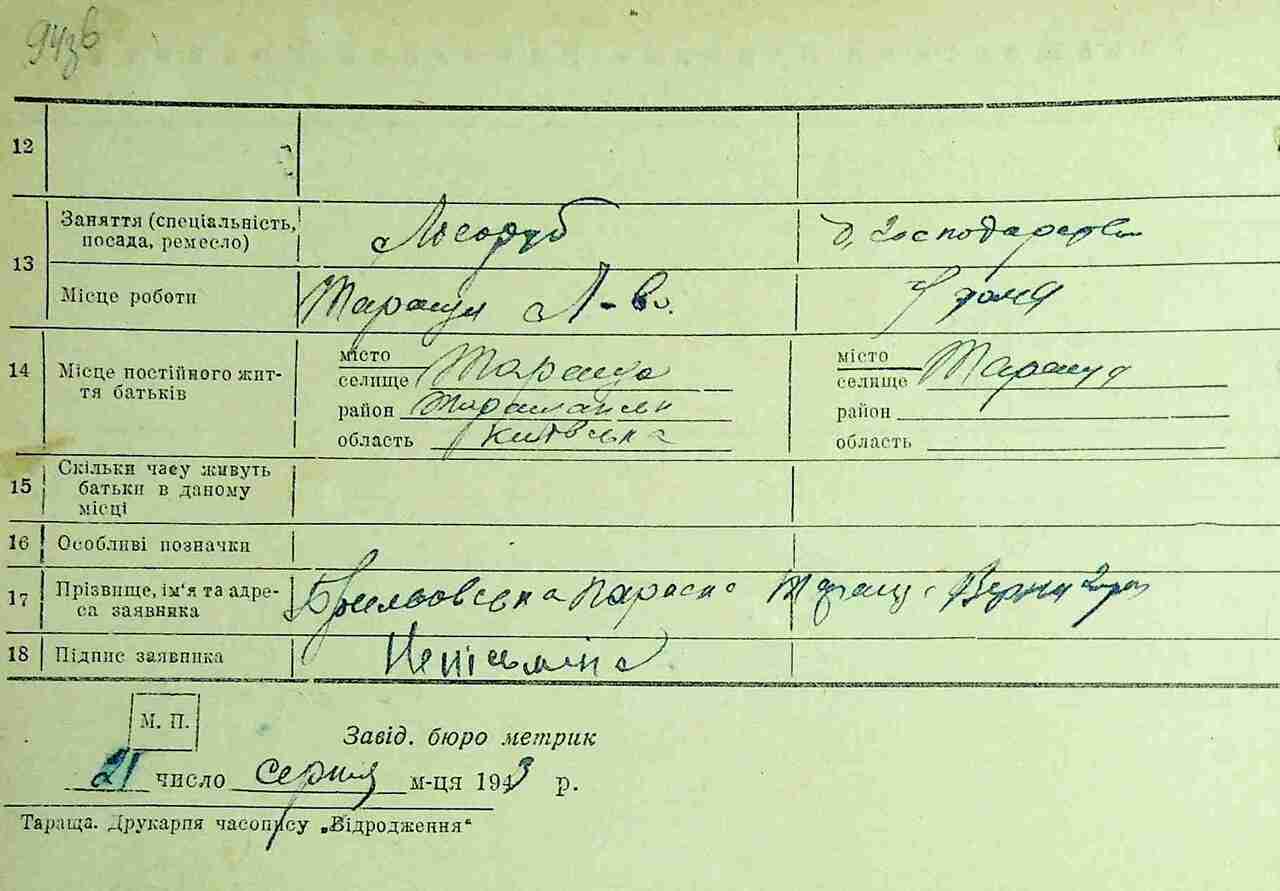 12
13 Заняття (спеціальність, посада, ремесло) Лісоруб д. господарств
Місце роботи Тараща Л-во. У дома
14 Місце постійного жит-
тя батьків
місто
селище Тараща
район Таращанськ
область Київська
місто
селище Тараща
район
область
15 Скільки часу живуть
батьки в даному
місці
16 Особливі позначки
17 Прізвище, ім'я та адре-
са заявника Параска Тараща
18 Підпис заявника Неписьмінна
М. П.
Завід. бюро метрик
21 число серпня м-ця 1943 р.
Тараща. Друкарня часопису „Відродження“